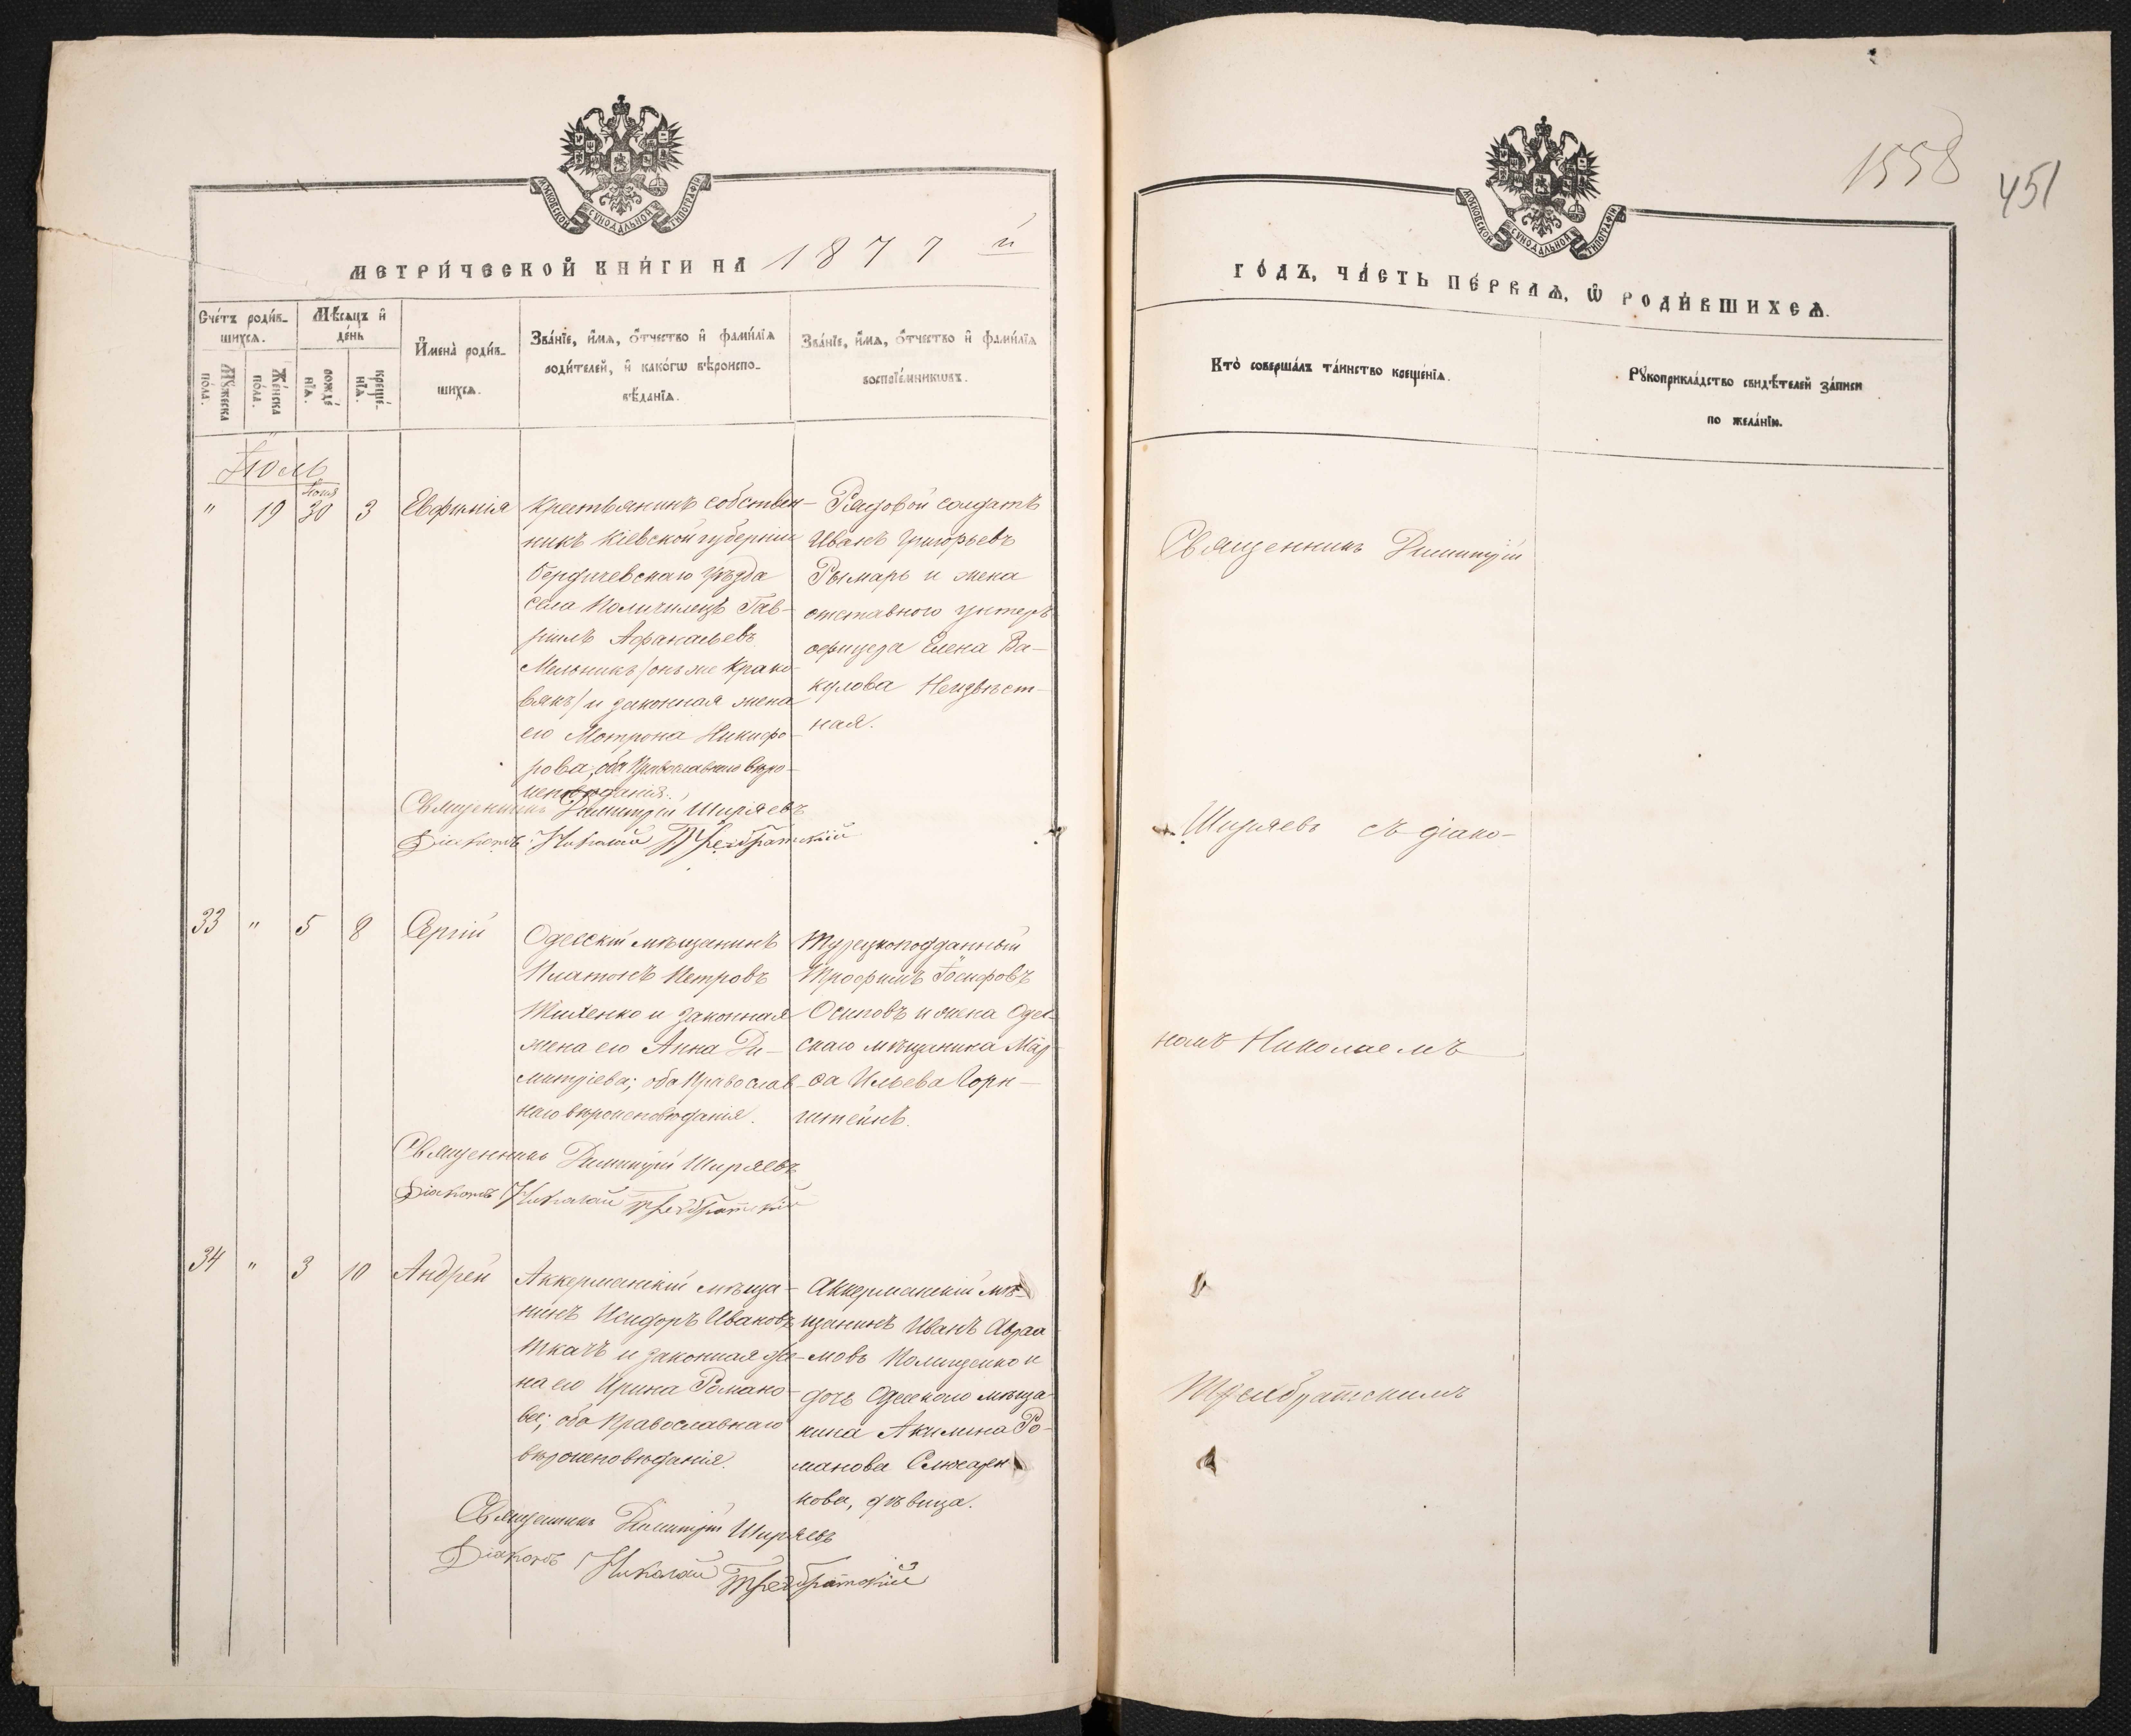 МОСКОВСКОЙ СѴНОДАЛЬНОЙ ТИПОГРАФІИ
МЕТРИ́ЧЕСКОЙ КНИ́ГИ НА 1877 й
Сче́тъ роди́в-
шихсѧ.
Мꙋ́жеска
по́ла.
Же́нска
по́ла.
Мѣ́сѧцъ и҆
де́нь
рожде́
нїѧ.
креще́-
нїѧ.
И҆мена̀ роди́в-
шихсѧ.
Зва́нїе, и҆́мѧ, ѻ҆́тчество и҆ фами́лїѧ
роди́телей, и҆ како́гѡ вѣроиспо-
вѣ́данїѧ.
Зва́нїе, и҆́мѧ, ѻ҆́тчество и҆ фами́лїѧ
воспрїе́мникѡвъ.
Іюль
" 19 30 3 Евфимія
Крестьянинъ собствен-
никъ Кіевской губерніи
Бердичевскаго уѣзда
села Поличинецъ Гав-
ріилъ Афанасьевъ
Мельникъ /онъ же Крако-
вякъ/ и законная жена
его Мотрона Никифо-
рова; оба Православнаго вѣро-
исповѣданія.
Рядовой солдатъ
Иванъ Григорьевъ
Рымарь и жена
отставного унтеръ
офицера Елена Ва-
кулова Неизвѣст-
ная.
Священникъ Димитрій Ширяевъ
Діаконъ Николай Трехбратскій
33 " 5 8 Сергій
Одесскій мѣщанинъ
Платонъ Петровъ
и законная
жена его Анна Ди-
митріева; оба Православ-
наго вѣроисповѣданія.
Турецкоподданный
Трофимъ Іосифовъ
Осиповъ и жена Одес-
скаго мѣщанина Мар-
фа Ильева Горн-
штейнъ.
Священникъ Димитрій Ширяевъ
Діаконъ Николай Трехбратскій
34 " 3 10 Андрей
Аккерманскій мѣща-
нинъ Исидоръ Ивановъ
Ткачъ и законная же-
на его Ирина Романо-
ва; оба Православнаго
вѣроисповѣданія.
Аккерманскій мѣ-
щанинъ Иванъ Авраа
мовъ Полищенко и
дочь Одесскаго мѣща
нина Акилина Ро-
манова Слюсарен
кова, дѣвица.
Священникъ Димитрій Ширяевъ
Діаконъ Николай Трехбратскій
1558
451
МОСКОВСКОЙ СѴНОДАЛЬНОЙ ТИПОГРАФІИ
ГО́ДЪ, ЧА́СТЬ ПЕ́РВАѦ, Ѽ РОДИ́ВШИХСѦ.
Кто̀ соверша́лъ та́инство креще́нїѧ.
Рꙋкоприкла́дство свидѣ́телей за́писи
по жела́нїю.
Священникъ Димитрій
Ширяевъ съ діако-
номъ Николаемъ
Трехбратскимъ